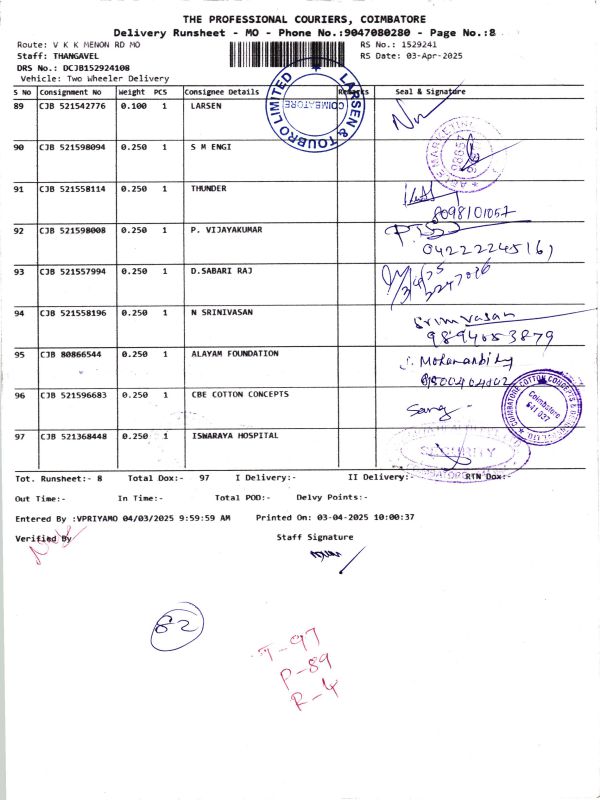 THE PROFESSIONAL COURIERS, COIMBATORE
Delivery Runsheet - MO - Phone No.:9047080280 - Page No.:8
Route: V K K MENON RD MO
RS No.: 1529241
Staff: THANGAVEL
RS Date: 03-Apr-2025
DRS No.: DCJB152924108
Vehicle: Two Wheeler Delivery
S No Consignment No Weight PCS Consignee Details Remarks Seal & Signature
89 CJB 521542776 0.100 1 LARSEN
LARSEN & TOUBRO LIMITED
COIMBATORE
90 CJB 521598094 0.250 1 S M ENGI
91 CJB 521558114 0.250 1 THUNDER
8098101057
92 CJB 521598008 0.250 1 P. VIJAYAKUMAR
04222245161
93 CJB 521557994 0.250 1 D.SABARI RAJ
94 CJB 521558196 0.250 1 N SRINIVASAN
Srinivasan
9894053879
95 CJB 80866544 0.250 1 ALAYAM FOUNDATION
96 CJB 521596683 0.250 1 CBE COTTON CONCEPTS
Coimbatore
641 037
97 CJB 521368448 0.250 1 ISWARAYA HOSPITAL
SECURITY
Tot. Runsheet:- 8 Total Dox:- 97 I Delivery:- II Delivery:- RTN Dox:-
Out Time:- In Time:- Total POD:- Delvy Points:-
Entered By :VPRIYAMO 04/03/2025 9:59:59 AM Printed On: 03-04-2025 10:00:37
Verified By Staff Signature
82
T-97
P-89
R-4